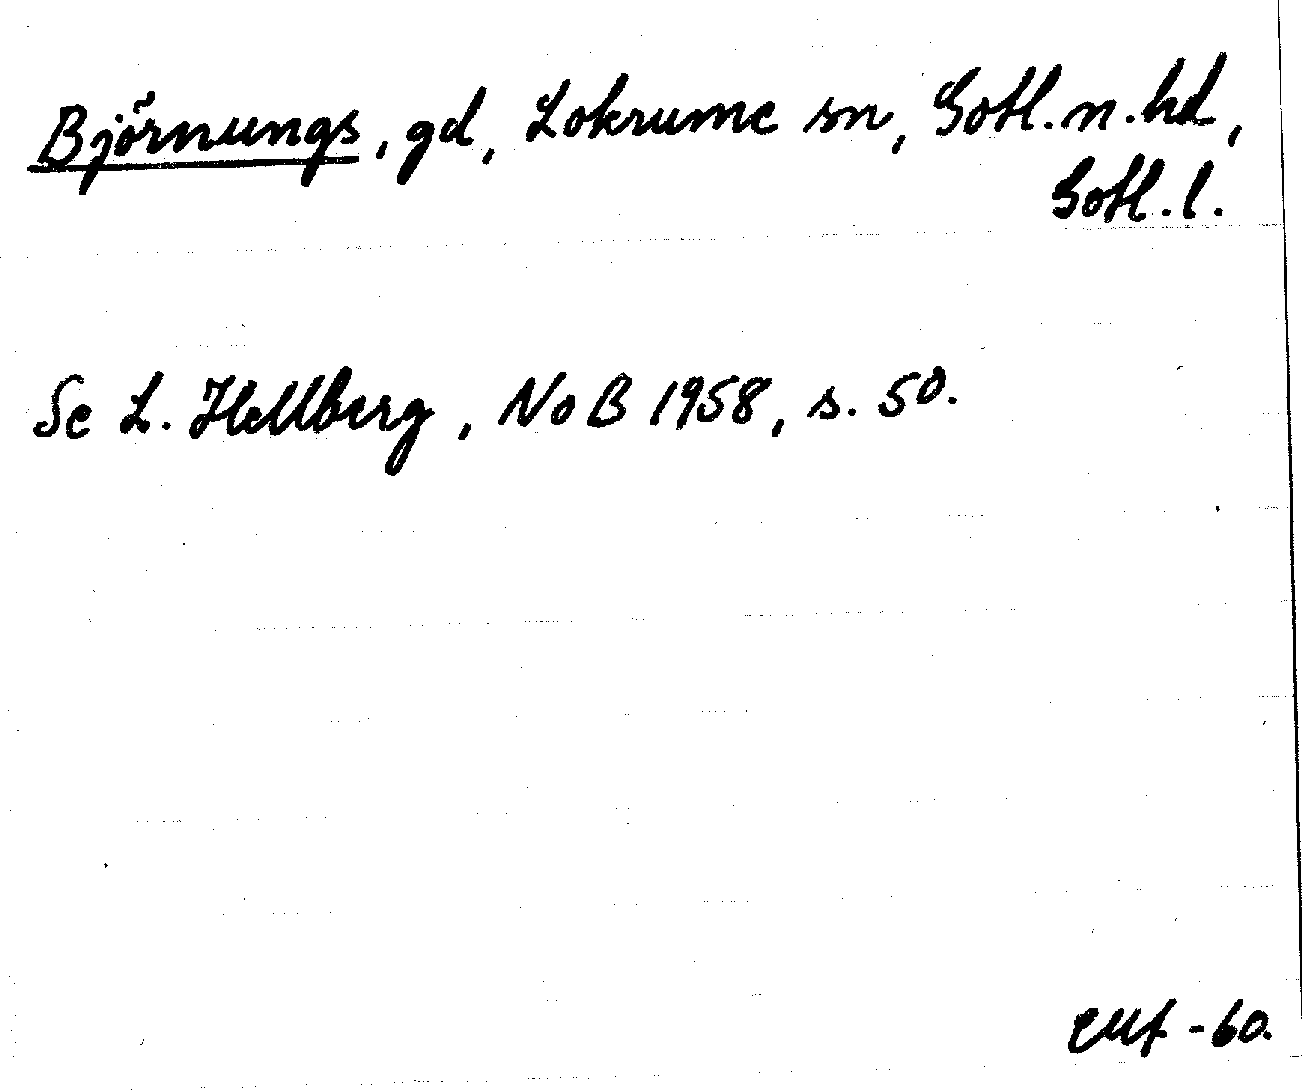 Björnungs, gd, Lokrume sn, Gotl. n. hd,
Gotl. l.
Se L. Hellberg, NoB 1958, s. 50.
-60.